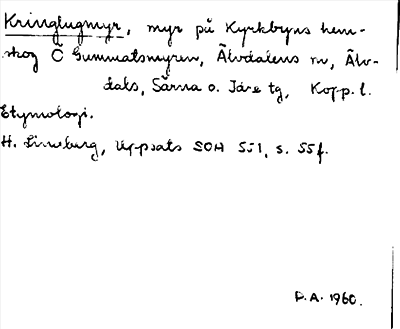 Kringlugmyr, myr på Kyrkbyns hem-
skog Č Gummatsmyren, Älvdalens sn, Älv-
dals, Särna o. Idre tg, Kopp. l.
Etymologi.
H. Lineburg, Uppsats SOH 551, s. 55 f.
D.A. 1960.